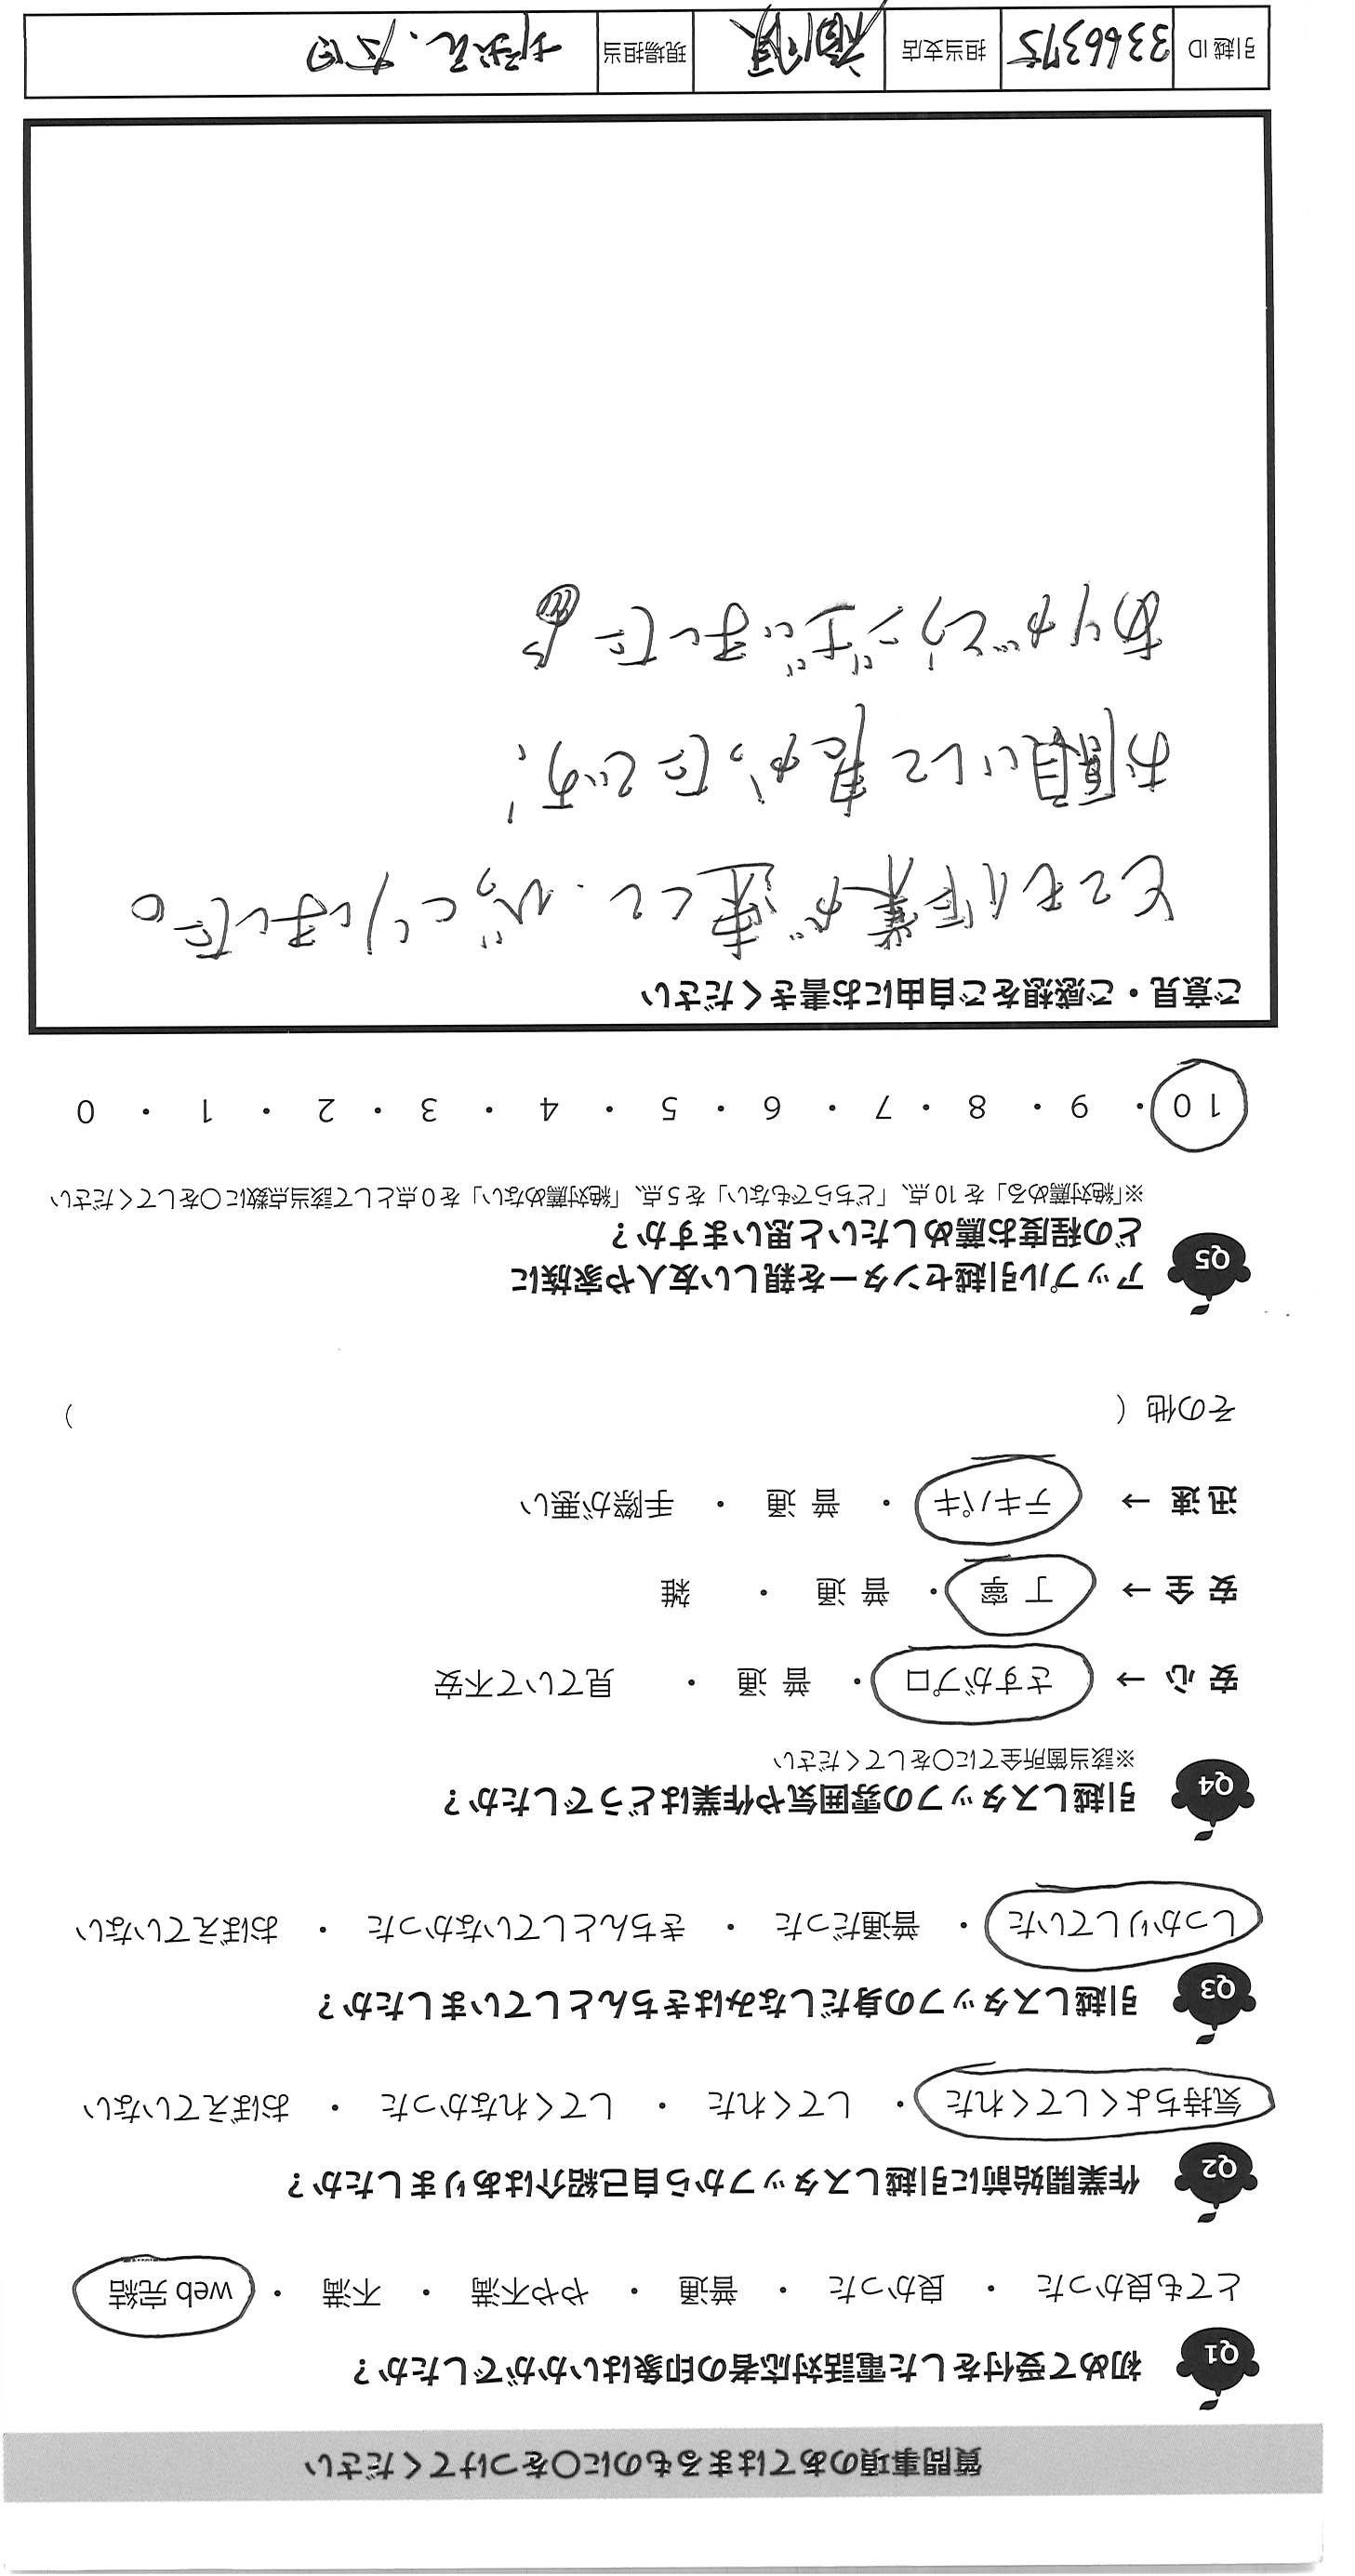 質問事項のあてはまるものに○をつけてください
Q1 初めて受付をした電話対応者の印象はいかがでしたか？
とても良かった ・ 良かった ・ 普通 ・ やや不満 ・ 不満 ・ web 完結
Q2 作業開始前に引越しスタッフから自己紹介はありましたか？
気持ちよくしてくれた ・ してくれた ・ してくれなかった ・ おぼえていない
Q3 引越しスタッフの身だしなみはきちんとしていましたか？
しっかりしていた ・ 普通だった ・ きちんとしていなかった ・ おぼえていない
Q4 引越しスタッフの雰囲気や作業はどうでしたか？
※該当箇所全てに○をしてください
安心 → さすがプロ ・ 普通 ・ 見ていて不安
安全 → 丁寧 ・ 普通 ・ 雑
迅速 → テキパキ ・ 普通 ・ 手際が悪い
その他（ ）
Q5 アップル引越センターを親しい友人や家族に
どの程度お薦めしたいと思いますか？
※「絶対薦める」を10点、「どちらでもない」を5点、「絶対薦めない」を0点として該当点数に○をしてください
10 ・ 9 ・ 8 ・ 7 ・ 6 ・ 5 ・ 4 ・ 3 ・ 2 ・ 1 ・ 0
ご意見・ご感想をご自由にお書きください
とても作業が速くて、びっくりしました。
お願いして良かったです！
ありがとうございました
引越ID 3366375 担当支店 現場担当